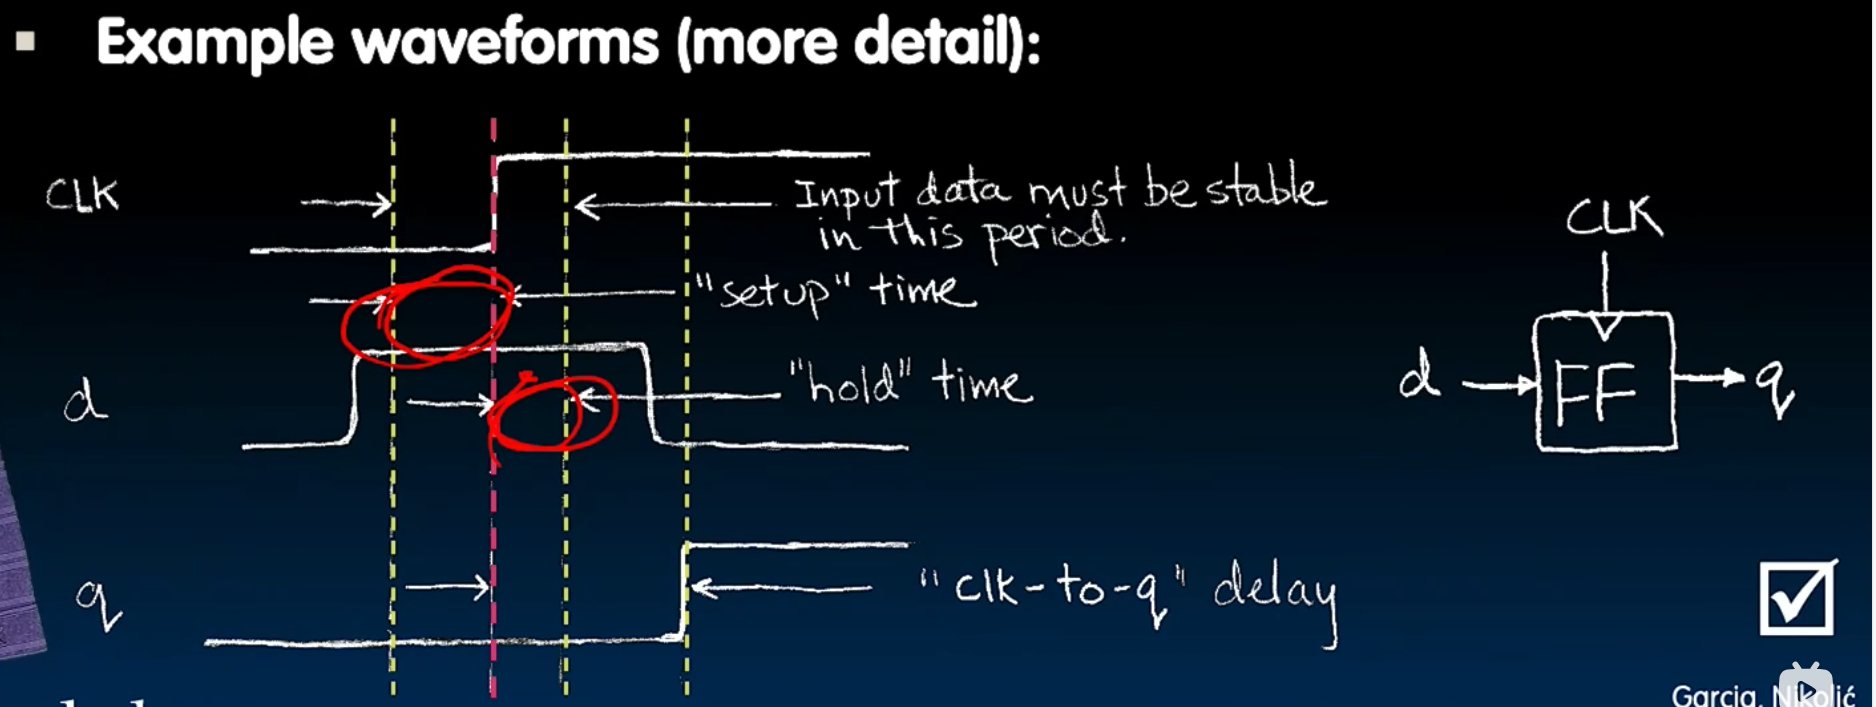 Example waveforms (more detail):
CLK
Input data must be stable
in this period.
"setup" time
d
"hold" time
q
"clk-to-q" delay
CLK
d
FF
q
Garcia, Nikolić